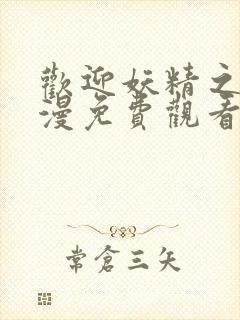 歡迎妖精之
漫免費觀看
常倉三矢